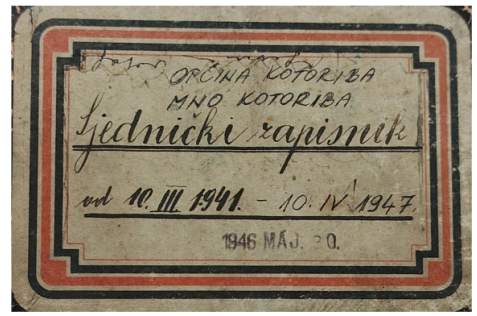 OPĆINA KOTORIBA
MNO KOTORIBA
Sjednički zapisnik
od 10. III 1941. - 10. IV 1947.
1946 MÁJ. 20.